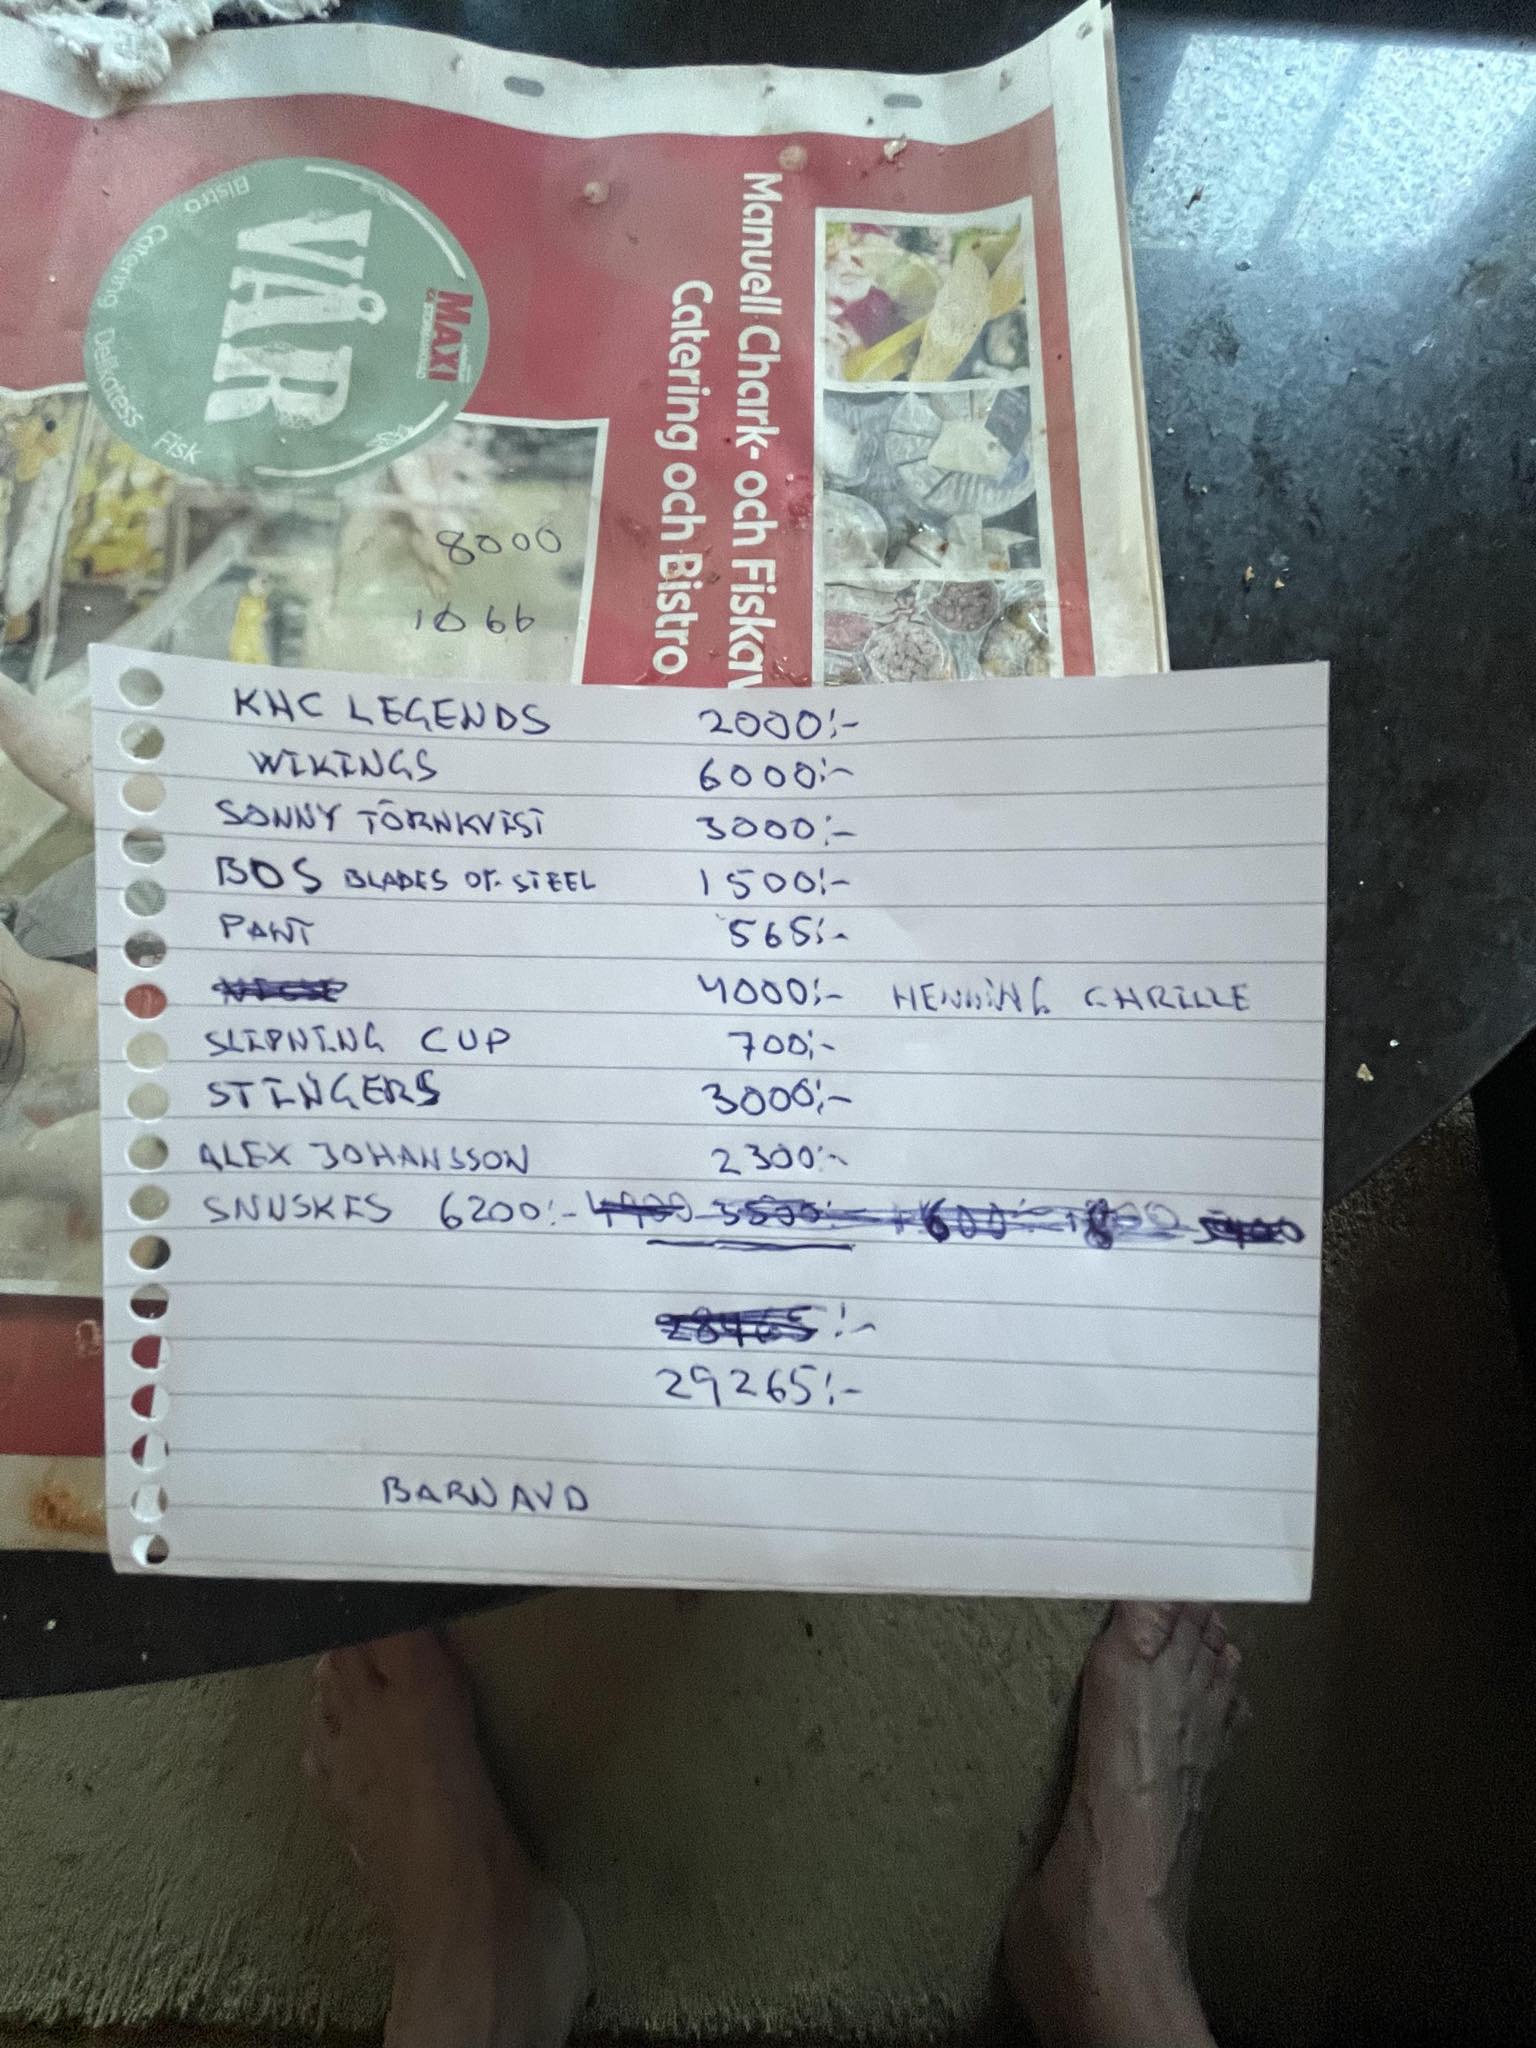 Bistro Catering Delikatess Fisk
VÅR
MAXI
Manuell Chark- och Fiskav
Catering och Bistro
8000
1066
KHC LEGENDS 2000:-
WIKINGS 6000:-
SONNY TÖRNKVIST 3000:-
BOS BLADES OF STEEL 1500:-
PANT 565:-
4000:- HENNING CHRILLE
SLIPNING CUP 700:-
STINGERS 3000:-
ALEX JOHANSSON 2300:-
SNUSKES 6200:-
28465:-
29265:-
BARNAVD